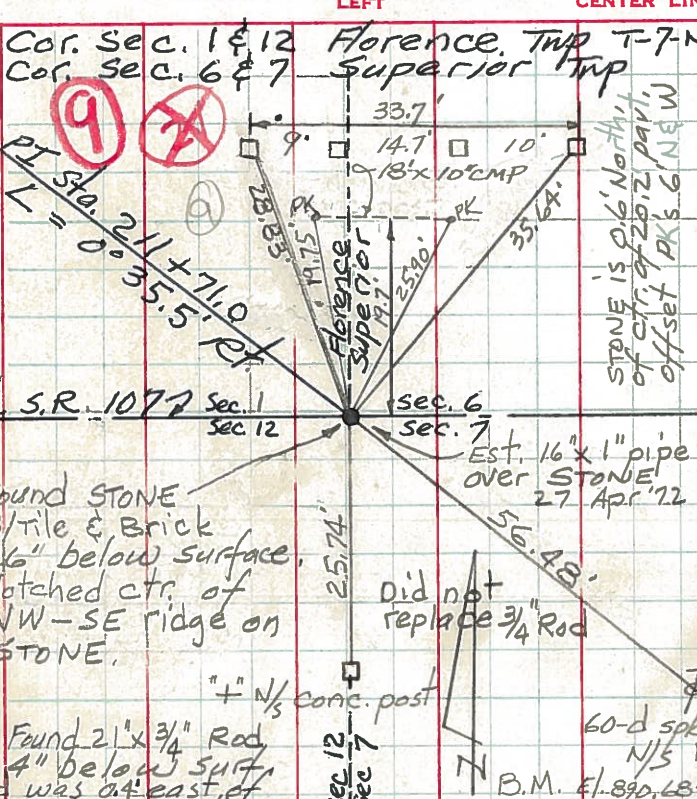 LEFT
CENTER LIN
Cor. Sec. 1 & 12 Florence Twp T-7-N
Cor. Sec. 6 & 7 Superior Twp
9
21
9
33.7'
9' 14.7' 10'
18' x 10" CMP
PK
PK
28.83'
19.75'
25.90'
35.64'
19.7'
Florence
Superior
PI Sta. 211 + 71.0
L = 0° 35.5' Rt.
STONE is 0.6' North,
of ctr. of 20.2 pav't,
offset PKs 6' N E W
S.R. 107
Sec. 1
Sec 12
Sec. 6
Sec. 7
Est. 16" x 1" pipe
over STONE
27 Apr '72
ound STONE
/Tile & Brick
6" below surface.
otched ctr. of
NW-SE ridge on
STONE.
25.74'
56.48'
Did not
replace 3/4" Rod
"+" N/S conc. post
Found 21" x 3/4" Rod
4" below surf,
was 0.4' east of
Sec 12
Sec 7
N
60-d spk
N/S
B.M. El. 890.68